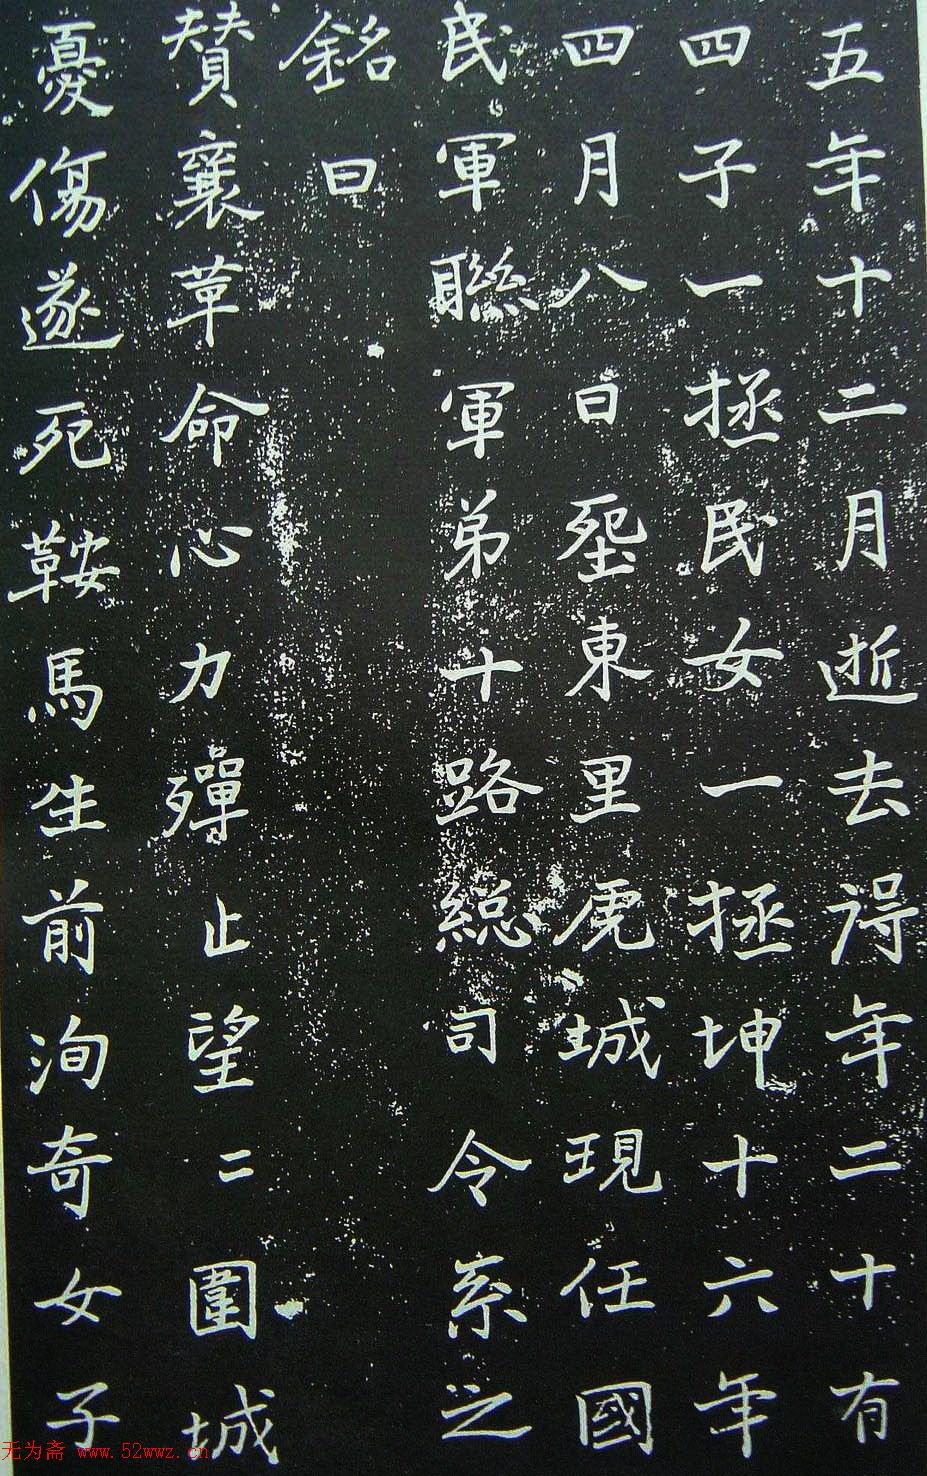 五年十二月逝去得年二十有
四子一拯民女一拯坤十六年
四月八日堊東里虎城現任國
民軍聯軍弟十路総司令系之
銘曰
賛襄革命心力殫止望二圍城
憂傷遂死鞍馬生前洵奇女子
无为斋 www.52wwz.cn